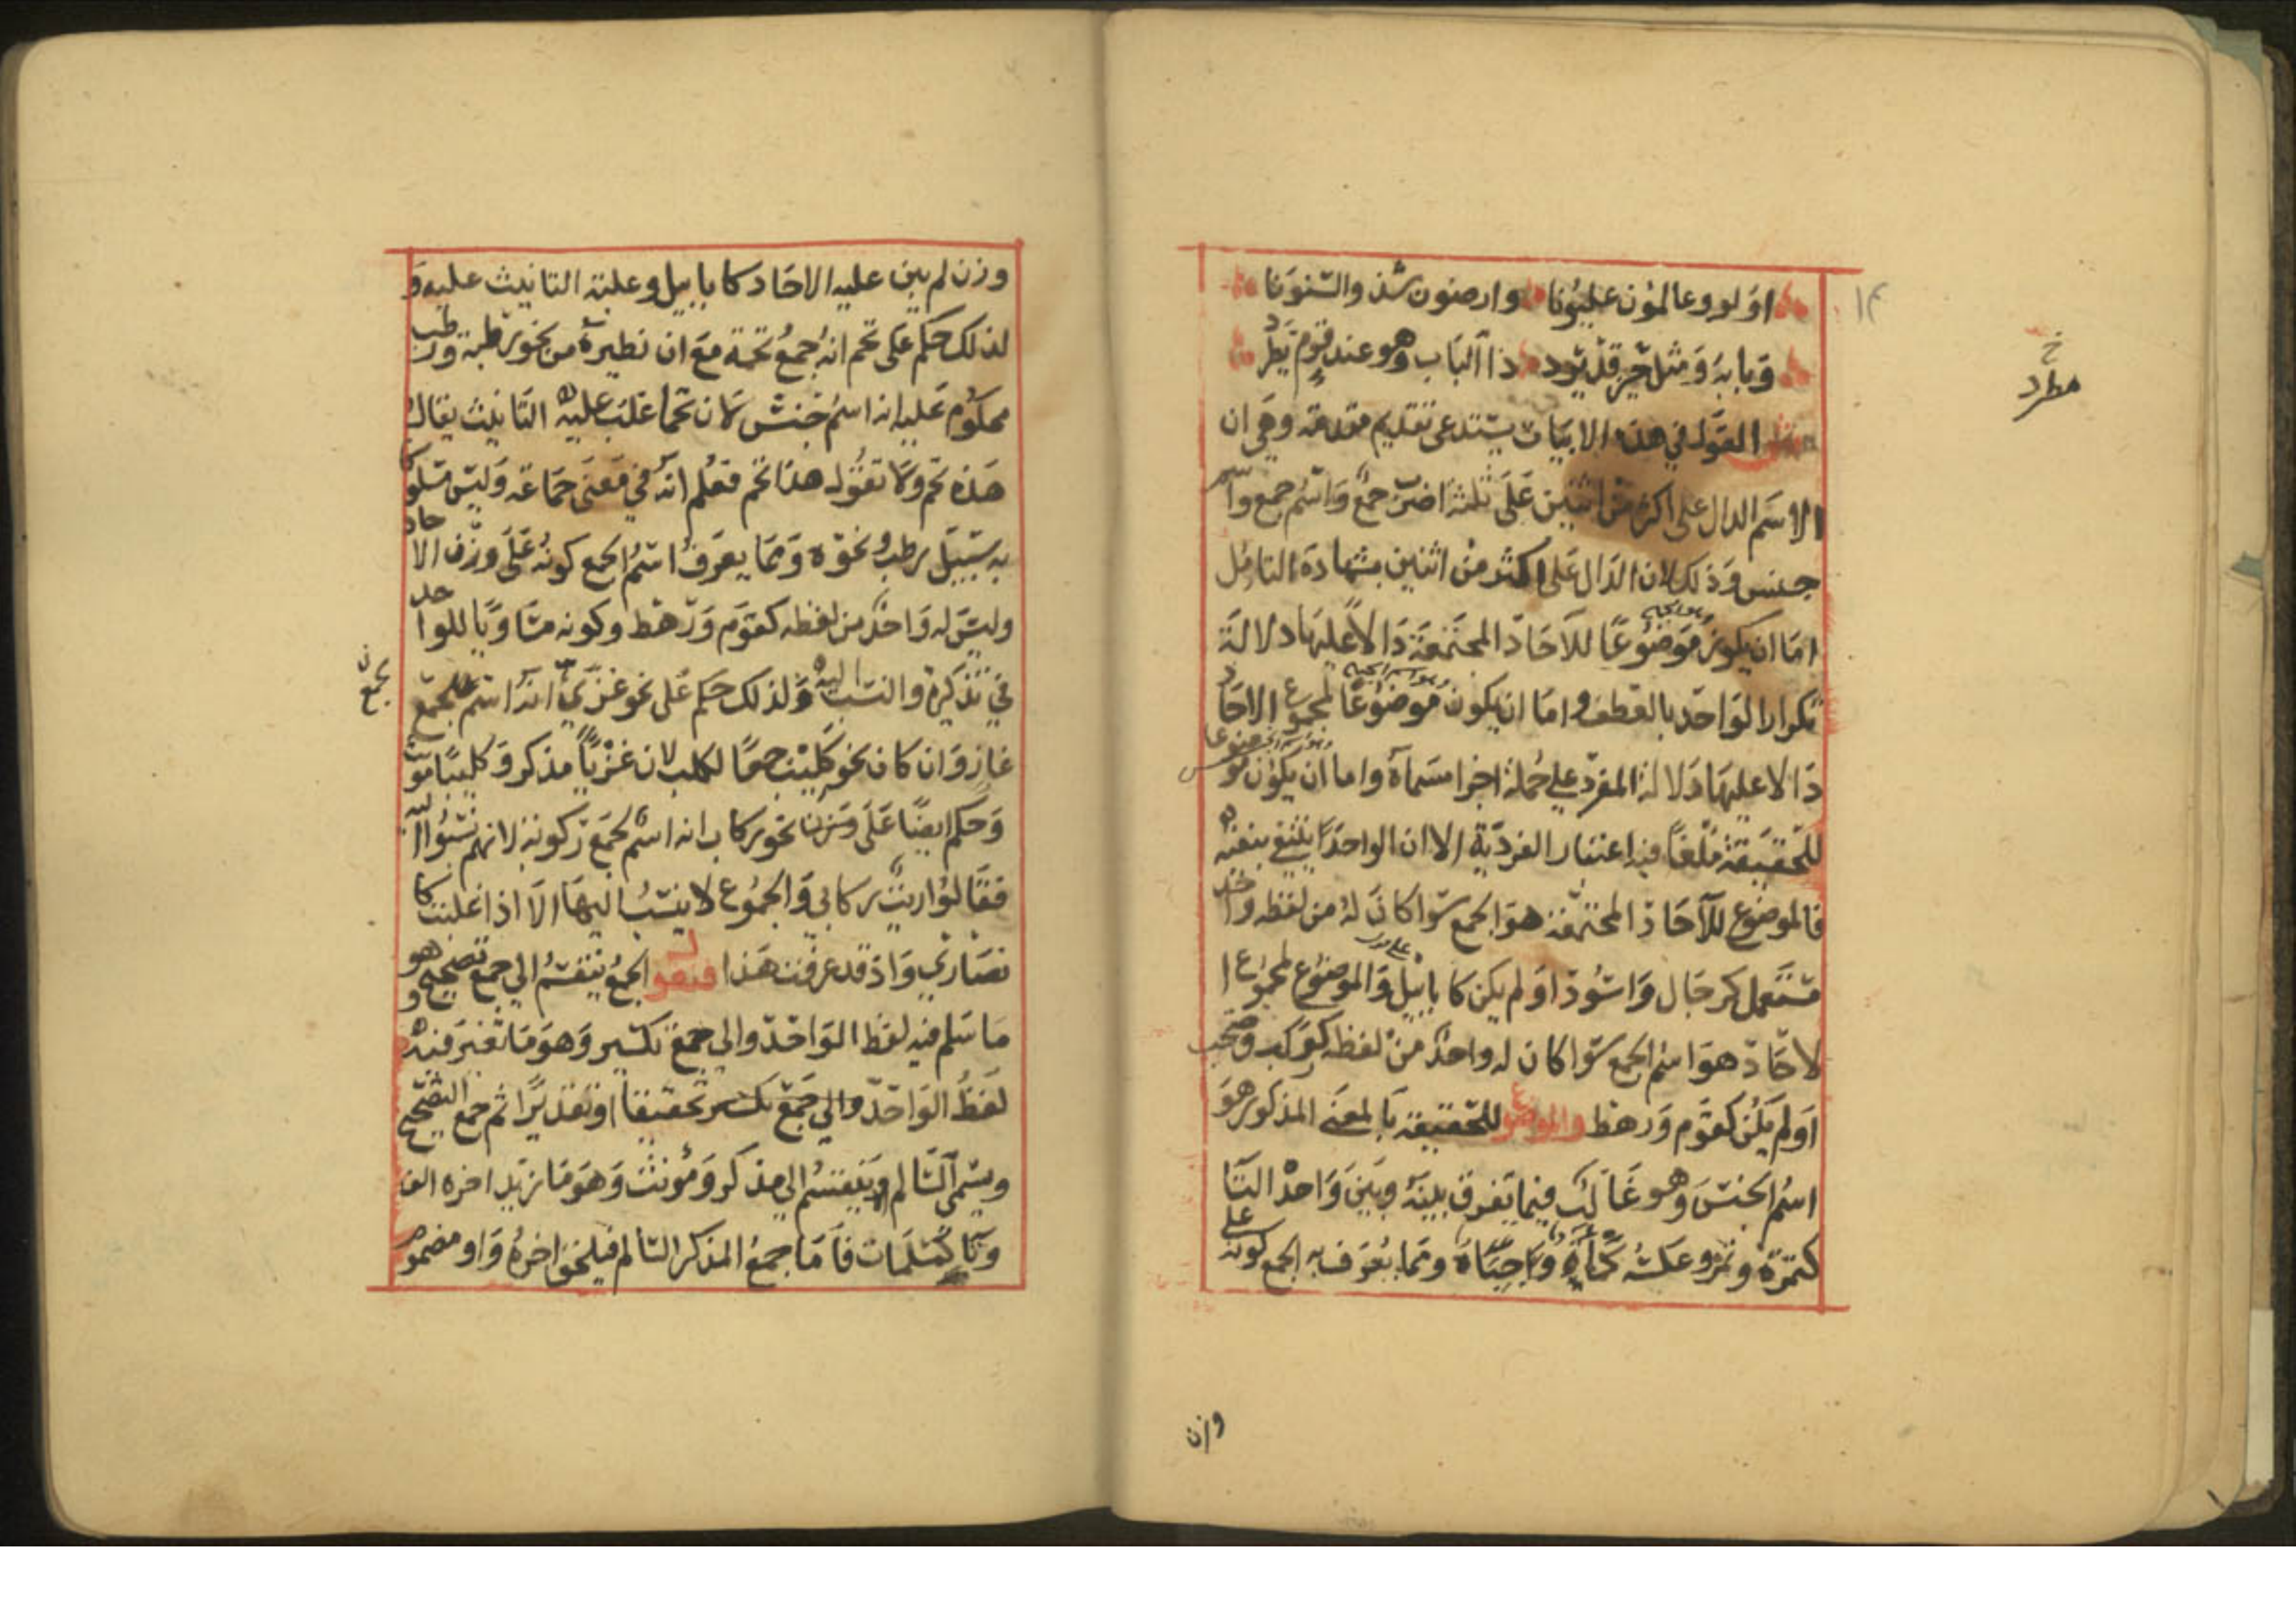 اولو وعالمون عليونا وارضون شذ والسنونا
وبابه ومثل حين قد يرد ذا الباب وهو عند قوم يطرد
القول في هذه الابيات يستدعي تقديم مقدمة وهي ان
الاسم الدال على اكثر من اثنين على ثلثة اضرب جمع واسم جمع واسم
جنس وذلك لان الدال على اكثر من اثنين بشهادة التامل
اما ان يكون موضوعا للاحاد المجتمعة دالا عليها دلالة
تكرار الواحد بالعطف واما ان يكون موضوعا لمجموع الاحاد
دالا عليها دلالة المفرد على جملة اجزا مسماه واما ان يكون موضوعا
للحقيقة ملغا فيه اعتبار الفردية الا ان الواحد ينتفي بنفيه
فالموضوع للاحاد المجتمعة هو الجمع سوا كان له من لفظه واحد
مستعمل كرجال واسود او لم يكن كابابيل والموضوع لمجموع ا
لاحاد هو اسم الجمع سوا كان له واحد من لفظه كركب وصحب
او لم يكن كقوم ورهط والموضوع للحقيقة بالمعنى المذكور هو
اسم الجنس وهو غالب فيما يفرق بينه وبين واحده التا
كتمرة وتمر وعكسه كماة وجباة ومما يعرف به الجمع كونه على
وزن
خ
مطرد
١٤
وزن لم يبن عليه الاحاد كابابيل وغلبة التانيث عليه و
لذلك حكم على تخم انه جمع تخمة مع ان نظيره من نحو رطبة ورطب
محكوم عليه انه اسم جنس لان تخما غلب عليه التانيث يقال
هذه تخم ولا تقول هذا تخم فعلم انه في معنى جماعة وليس مسلوكا
به سبيل رطب ونحوه ومما يعرف اسم الجمع كونه على وزن الاحاد
وليس له واحد من لفظه كقوم ورهط وكونه مساويا للواحد
في تذكيره والنسب اليه ولذلك حكم على نحو غزي انه اسم لجمع
غاز وان كان نحو كليب جمعا لكلب لان غزيا مذكر وكليبا مونث
وحكم ايضا على نحو ركاب انه اسم لجمع ركوبة لانهم نسبوا اليه
فقالوا زيت ركابي والجموع لا ينسب اليها الا اذا غلبت كا
نصاري واذ قد عرفت هذا فنقول الجمع ينقسم الي جمع تصحيح وهو
ما سلم فيه لفظ الواحد والى جمع تكسير وهو ما تغير فيه
لفظ الواحد والي جمع تكسير تحقيقا او تقديرا ثم جمع التصحيح
ويسمي السالم وينقسم الي مذكر ومونث وهو ما زيد اخره الف
وتا كمسلمات فاما جمع المذكر السالم فيلحق اخره واو مضموم
لجمع ن